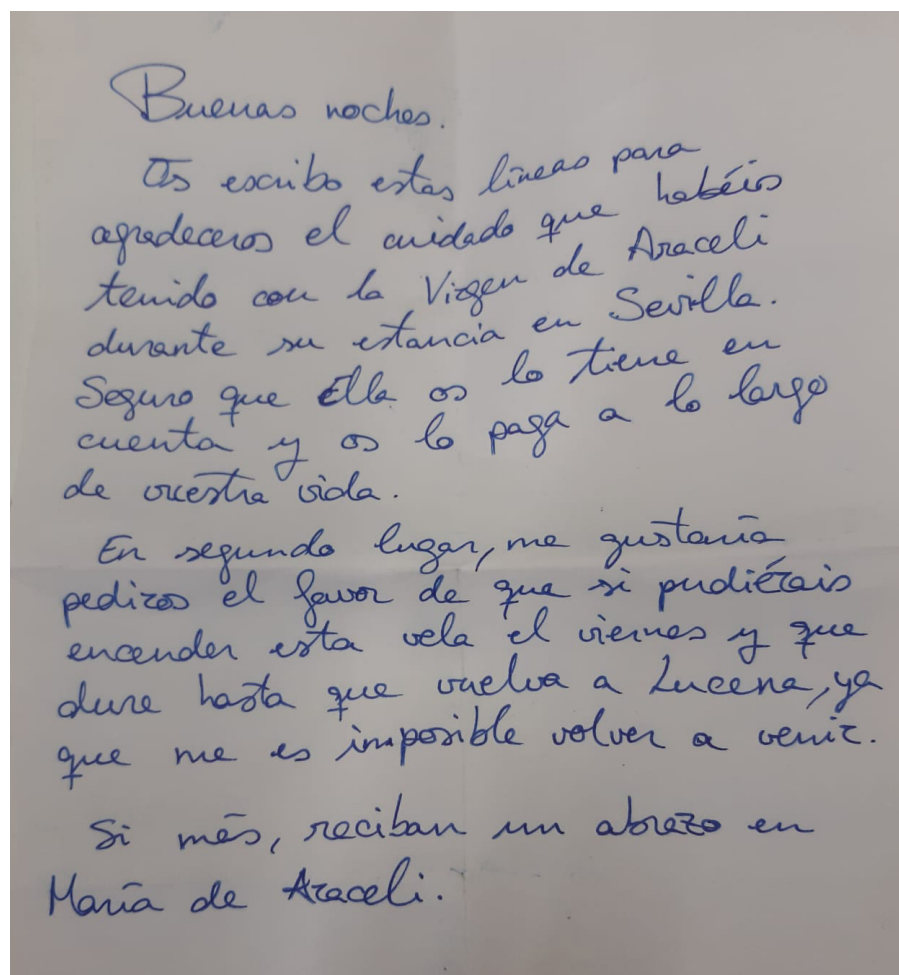 Buenas noches.
Os escribo estas líneas para
agradeceros el cuidado que habéis
tenido con la Virgen de Araceli
durante su estancia en Sevilla.
Seguro que Ella os lo tiene en
cuenta y os lo paga a lo largo
de vuestra vida.
En segundo lugar, me gustaría
pediros el favor de que si pudiérais
encender esta vela el viernes y que
dure hasta que vuelva a Lucena, ya
que me es imposible volver a venir.
Si más, reciban un abrazo en
María de Araceli.